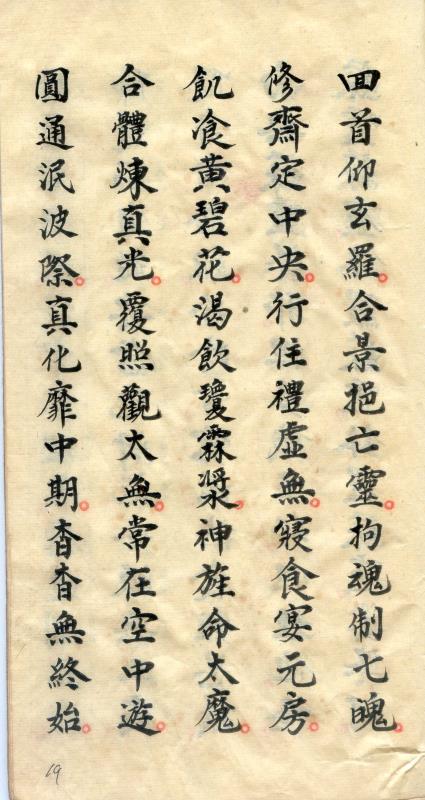 回首仰玄羅。合景挹亡靈。拘魂制七魄。
修齋定中央。行住禮虛無。寢食宴元房。
飢飡黃碧花。渴飲瓊霖漿。神旌命太魔。
合體煉真光。覆照觀太無。常在空中遊。
圓通泯波際。真化靡中期。杳杳無終始。
19